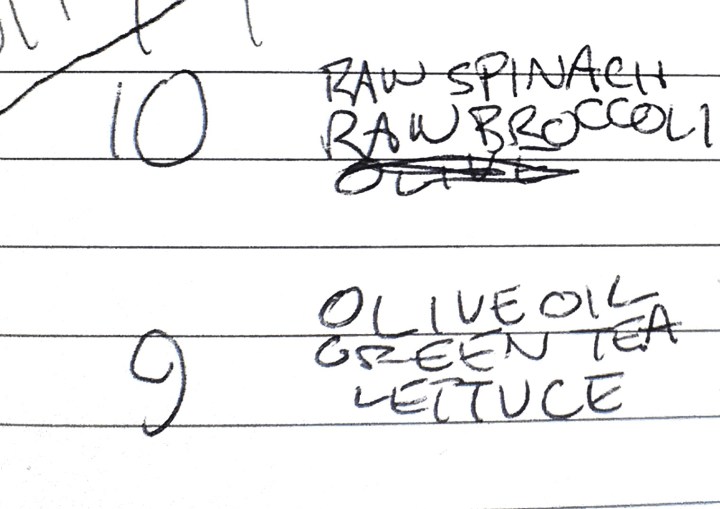 10 RAW SPINACH
RAW BROCCOLI
OLIVE OIL
9 GREEN TEA
LETTUCE